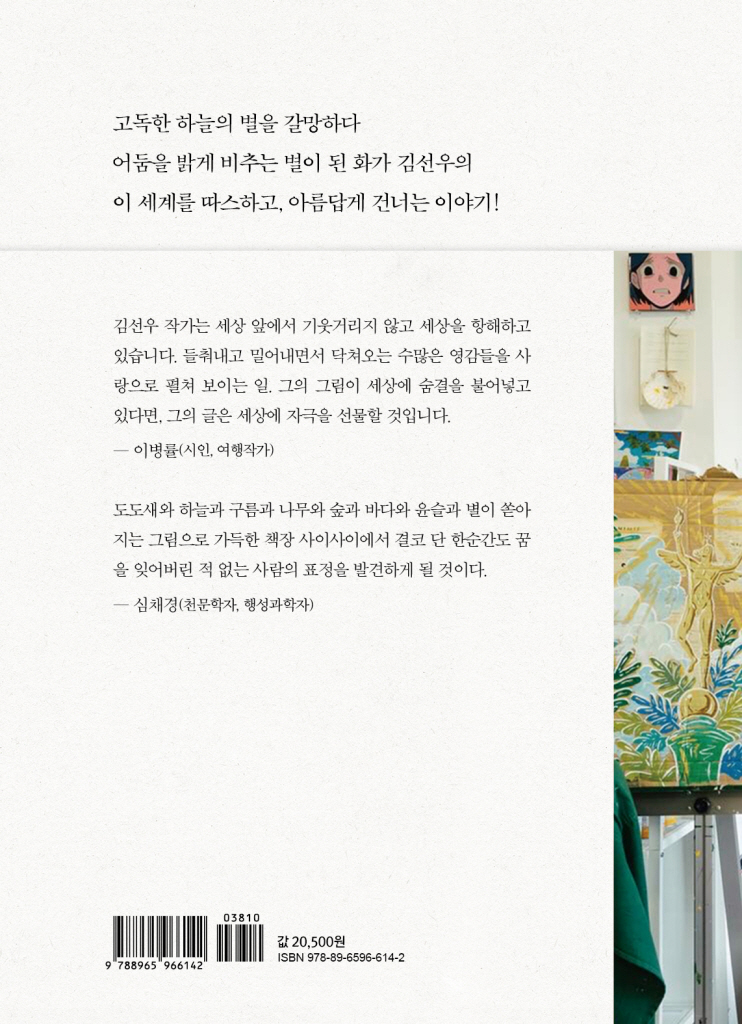 고독한 하늘의 별을 갈망하다
어둠을 밝게 비추는 별이 된 화가 김선우의
이 세계를 따스하고, 아름답게 건너는 이야기!
김선우 작가는 세상 앞에서 기웃거리지 않고 세상을 항해하고
있습니다. 들춰내고 밀어내면서 닥쳐오는 수많은 영감들을 사
랑으로 펼쳐 보이는 일. 그의 그림이 세상에 숨결을 불어넣고
있다면, 그의 글은 세상에 자극을 선물할 것입니다.
— 이병률(시인, 여행작가)
도도새와 하늘과 구름과 나무와 숲과 바다와 윤슬과 별이 쏟아
지는 그림으로 가득한 책장 사이사이에서 결코 단 한순간도 꿈
을 잊어버린 적 없는 사람의 표정을 발견하게 될 것이다.
— 심채경(천문학자, 행성과학자)
03810
9 788965 966142
값 20,500원
ISBN 978-89-6596-614-2